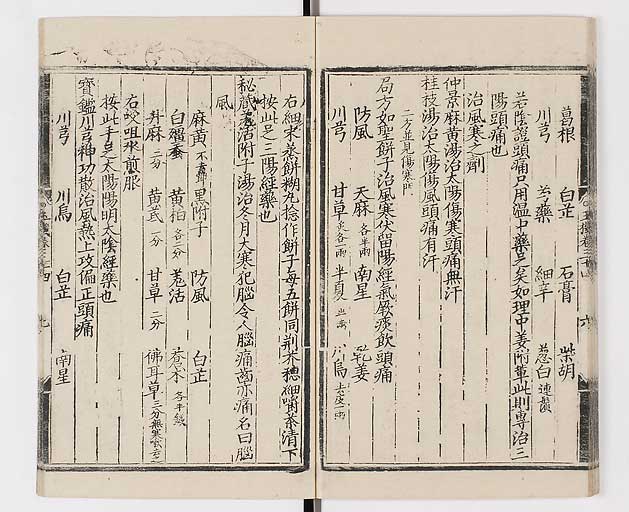 葛根 白芷 石膏 柴胡
川芎 芩藥 細辛 葱白連鬚
若陰證頭痛只用温中藥足矣如理中姜附輩此則專治三
陽頭痛也
治風寒之劑
仲景麻黄湯治太陽傷寒頭痛無汗
桂枝湯治太陽傷風頭痛有汗
二方並見傷寒門
局方如聖餅子治風寒伏留陽經氣厥痰飲頭痛
防風 天麻各半兩 南星 乾姜
川芎 甘草各一兩 半夏 川烏去皮一兩
右細末蒸餅糊丸捻作餅子每五餅同荆芥穗細嚼茶清下
按此足三陽經藥也
秘藏羌活附子湯治冬月大寒犯腦令人腦痛齒亦痛名曰腦
風
麻黄不去節 黑附子 防風 白芷
白殭蚕 黄柏各三分 羌活 蒼朮各半錢
升麻二分 黄芪一分 甘草二分 佛耳草三分無寒
右㕮咀水煎服
按此手足太陽陽明太陰經藥也
寳鑑川芎神功散治風熱上攻偏正頭痛
川芎 川烏 白芷 南星